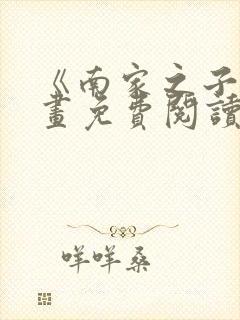 《南家之子
畫免費閱讀
咩咩桑